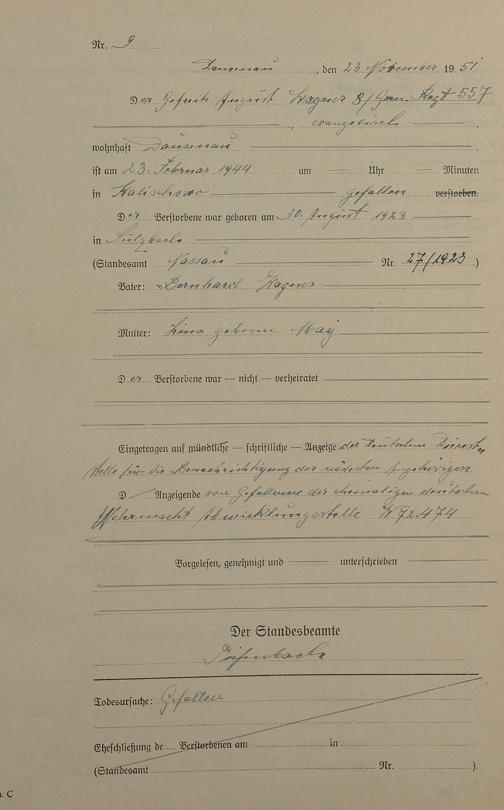 Nr. 9.
Dausenau, den 23 November 1951
Der Gefreite August Wagner 8/Gren. Regt 557
, evangelisch,
wohnhaft Dausenau,
ist am 23. Februar 1944 um Uhr Minuten
in Kalischowo gefallen verstorben.
Der Verstorbene war geboren am 30. August 1923
in Sulzbach
(Standesamt Nassau Nr. 27/1923)
Vater: Bernhard Wagner
Mutter: Lina geborene May
Der Verstorbene war — nicht — verheiratet
Eingetragen auf mündliche — schriftliche — Anzeige der Deutschen Dienst-
stelle für die Benachrichtigung der nächsten Angehörigen
D Anzeigende von Gefallenen der ehemaligen deutschen
Wehrmacht Abwicklungsstelle 72474
Vorgelesen, genehmigt und unterschrieben
Der Standesbeamte
Todesursache: Gefallen
Eheschließung de Verstorbenen am in
(Standesamt Nr. ).
C